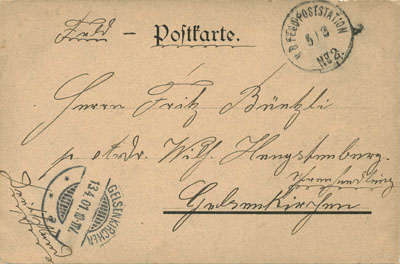 Feld - Postkarte.
K.D. FELD-POSTSTATION
5/3
No 2.
Herrn Fritz Büntzli
p. adr. Wilh. Hengstenberg.
Uhrenhandlung
Gelsenkirchen
GELSENKIRCHEN
13.4.01.10-11V.